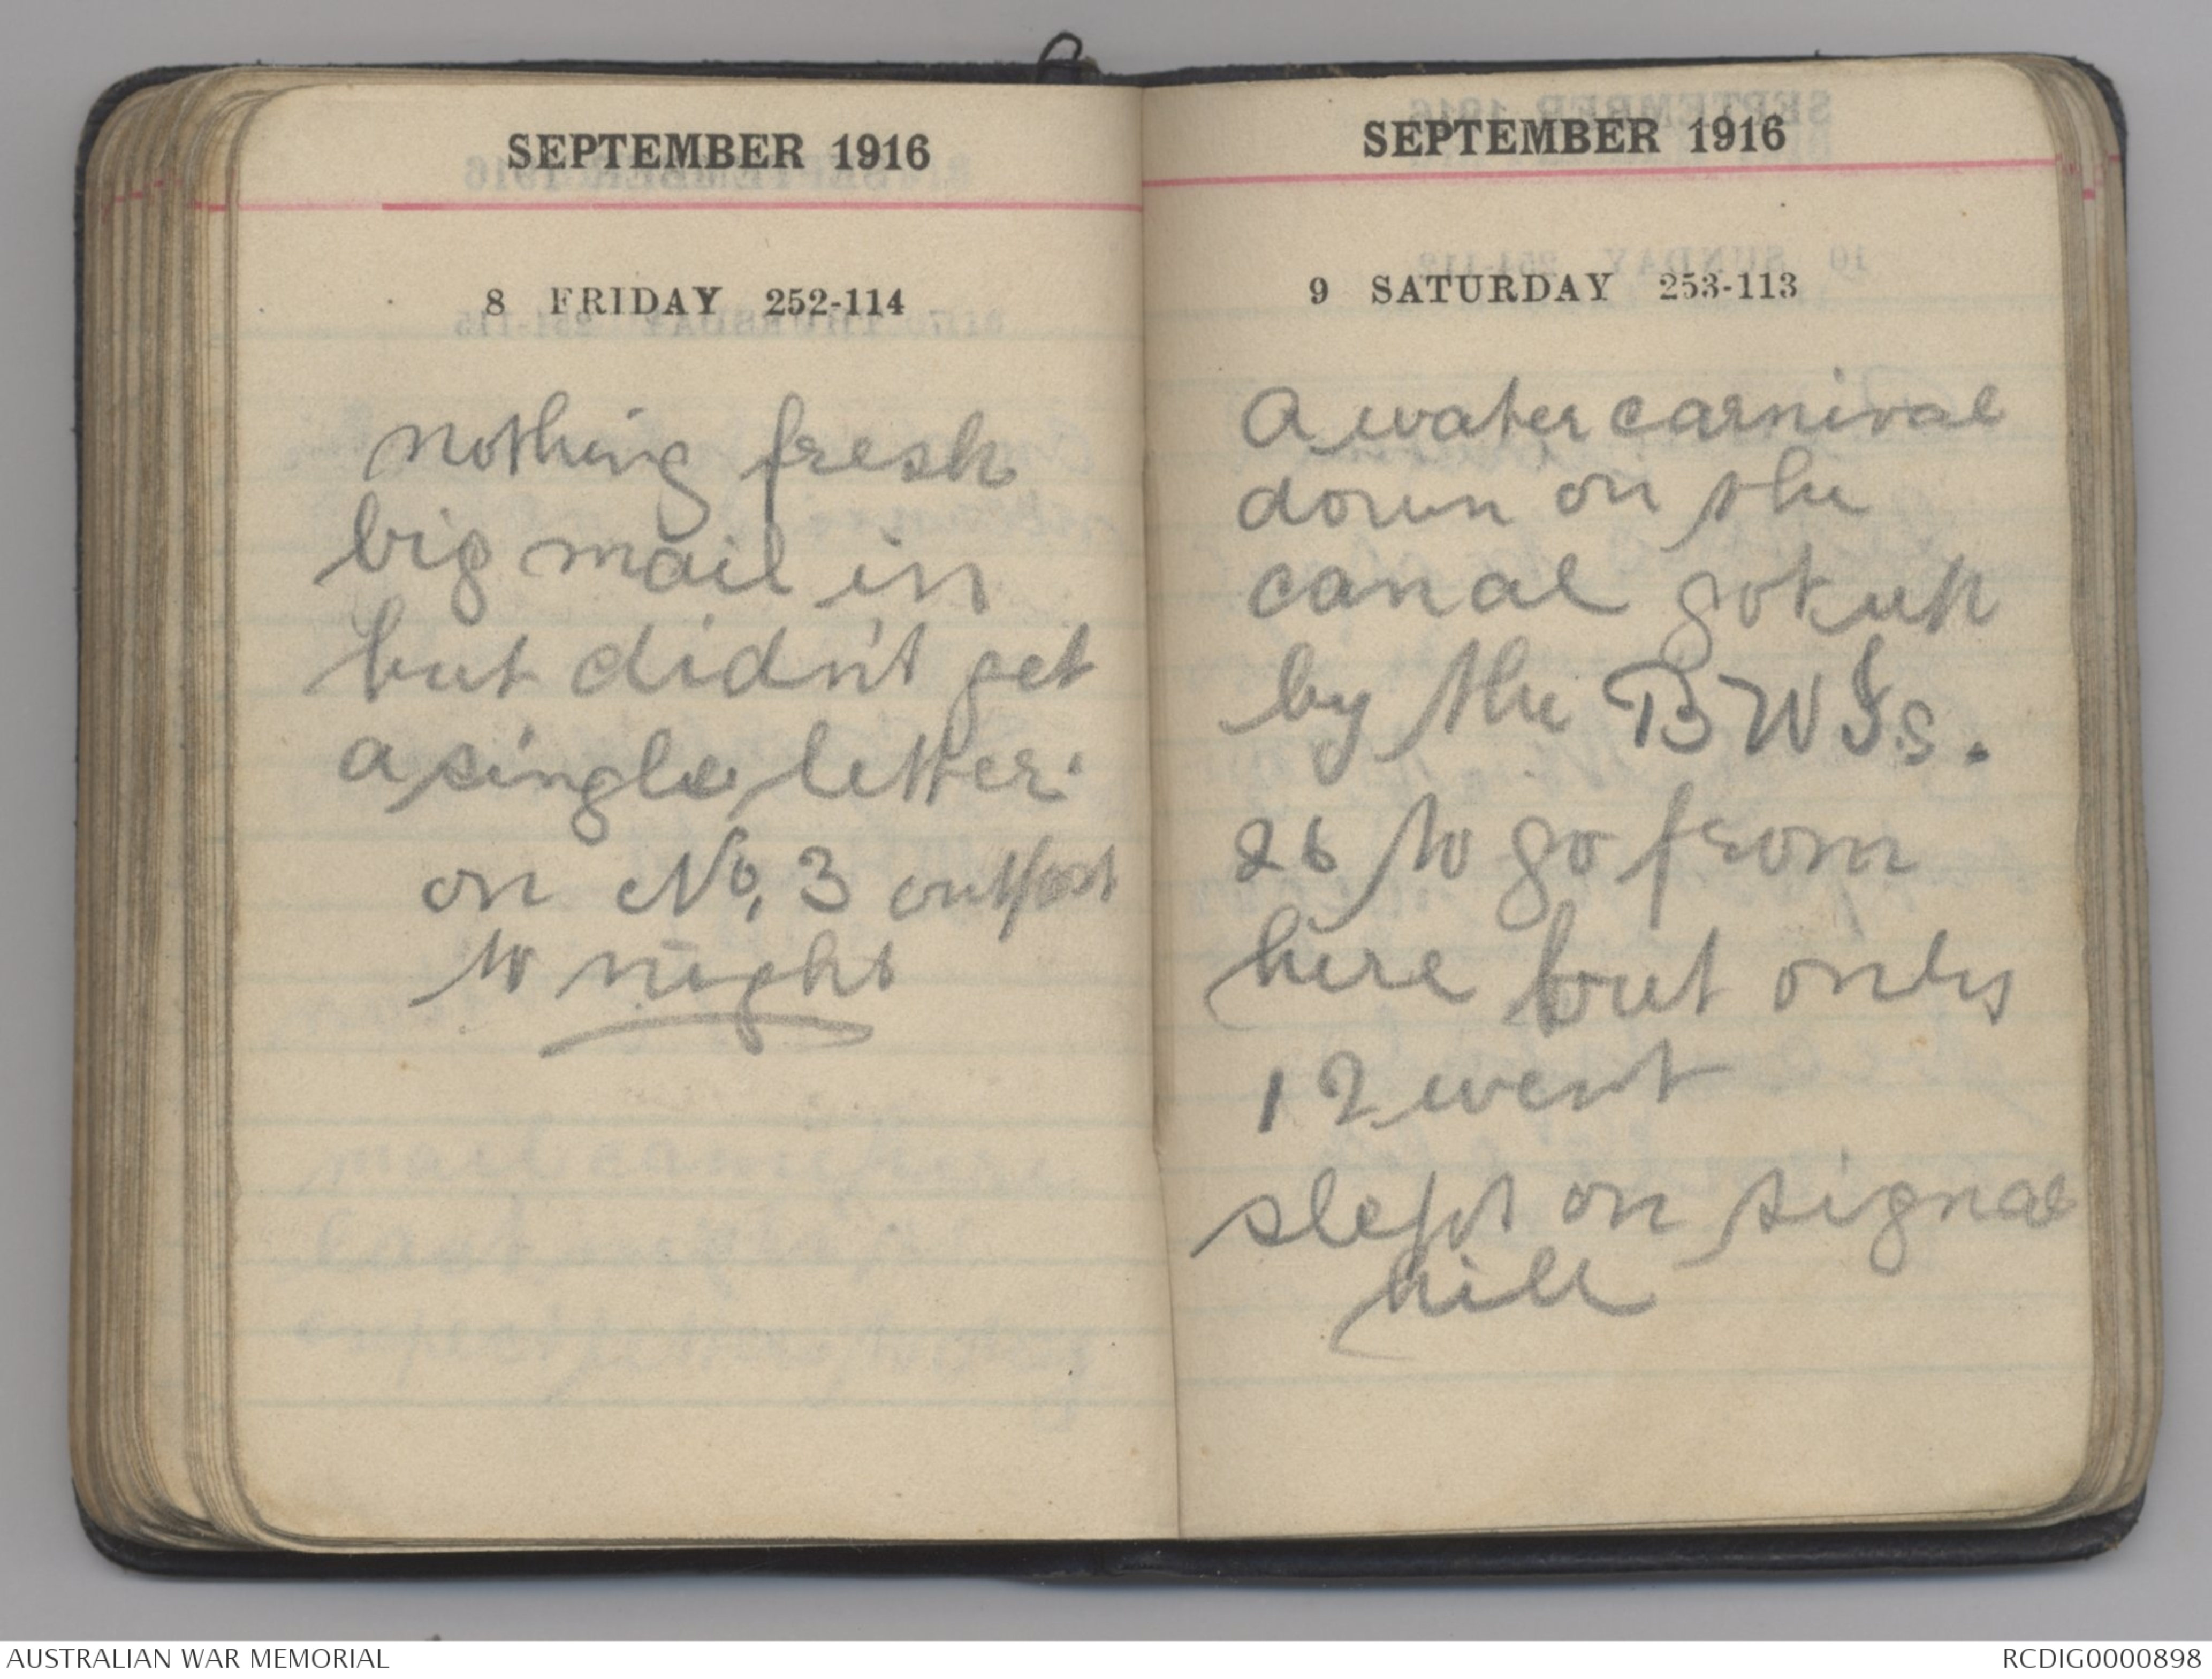 SEPTEMBER 1916
8 FRIDAY 252-114
nothing fresh
big mail in
but didn't get
a single letter.
on No. 3 outpost
to night
SEPTEMBER 1916
9 SATURDAY 253-113
A water carnival
down on the
canal got up
by the BWIs.
26 to go from
here but only
12 went
slept on signal
hill
AUSTRALIAN WAR MEMORIAL
RCDIG0000898